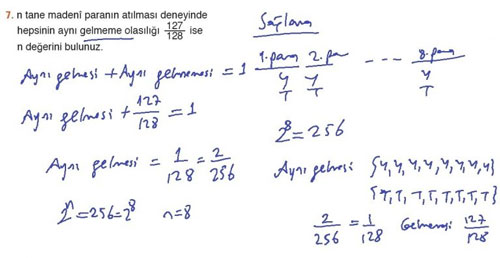 7. n tane madenî paranın atılması deneyinde
hepsinin aynı gelmeme olasılığı 127/128 ise
n değerini bulunuz.
Aynı gelmesi + Aynı gelmemesi = 1
Aynı gelmesi + 127/128 = 1
Aynı gelmesi = 1/128 = 2/256
2ⁿ = 256 = 2⁸ n=8
Sağlama
1. para 2. pa --- 8. para
Y Y Y
T T T
2⁸ = 256
Aynı gelmesi {Y, Y, Y, Y, Y, Y, Y, Y}
{T, T, T, T, T, T, T, T}
2/256 = 1/128 Gelmemesi 127/128